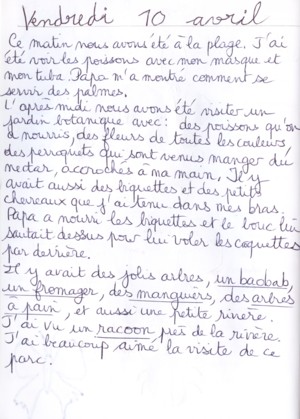 Vendredi 10 avril
Ce matin nous avons été à la plage. J'ai
été voir les poissons avec mon masque et
mon tuba. Papa m'a montré comment se
servir des palmes.
L'après midi nous avons été visiter un
jardin botanique avec : des poissons qu'on
a nourris, des fleurs de toutes les couleurs,
des perroquets qui sont venus manger du
nectar, accrochés à ma main, Il y
avait aussi des biquettes et des petits
chevreaux que j'ai tenu dans mes bras.
Papa a nourri les biquettes et le bouc lui
sautait dessus pour lui voler les coquettes
par derrière.
Il y avait des jolis arbres, un baobab,
un fromager, des manguiers, des arbres
à pain, et aussi une petite rivière.
J'ai vu un racoon près de la rivière.
J'ai beaucoup aimé la visite de ce
parc.